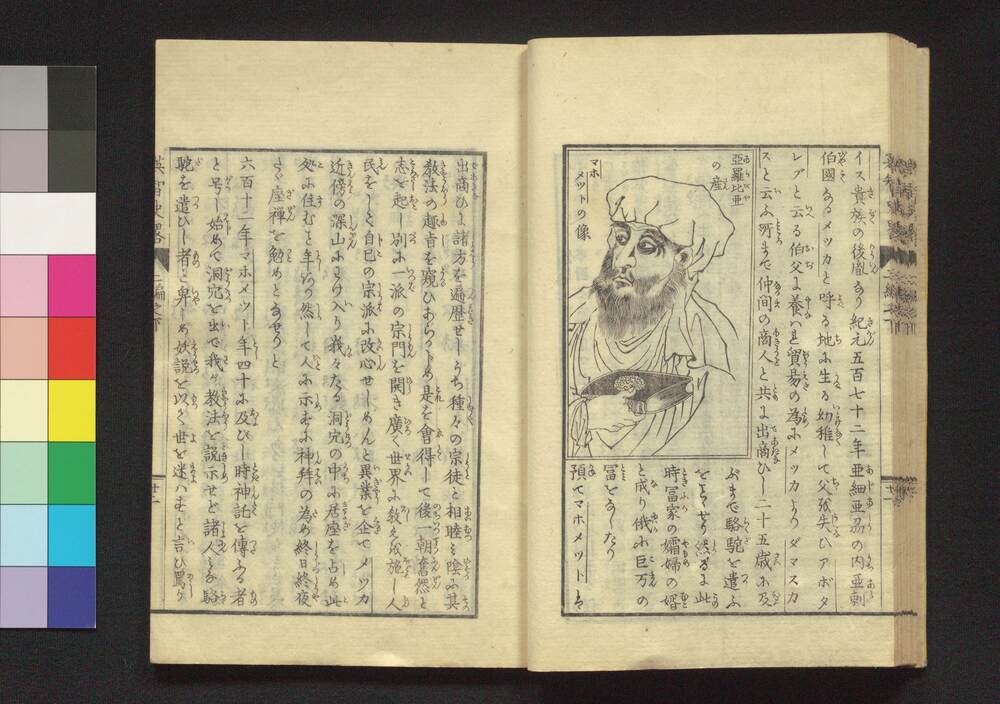 イス貴族の後胤なり紀元五百七十二年亜細亜洲の内亜剌
伯國なるメツカと呼る地に生る幼稚して父を失ひアボタ
レブと云る伯父に養はれ貿易の為にメツカよりダマスカ
スと云ふ所まで仲间の商人と共に出商ひし二十五歳に及
ぶまで駱駝を遣ふ
をとせり然るに此
時冨家の孀婦の婿
と成り俄に巨万の
冨をなしたり
預てマホメツトは
亞羅比亜
の産
マホ
メツトの像
出商ひに諸方を遍歴せしうち種々の宗徒と相睦み陰に其
教法の趣旨を窺ひあらかじめ是を會得して後一朝奮然と
志を起し別に一派の宗門を開き廣く世界に教えを施し人
民をして自己の宗派に改心せしめんと異業を企てメツカ
近傍の深山にわけ入り峩々たる洞穴の中に居座を占め此
処に住むこと年あり然して人に示すに神拜の為め終日終夜
座禅を勉めとなせりと
六百十二年マホメツト年四十に及びし時神託を傳ふる者
と号し始めて洞穴を出で我が教法を説示せど諸人みな駱
駝を遣ひし者と卑しめ妖説を以て世を迷はすと言ひ罵り